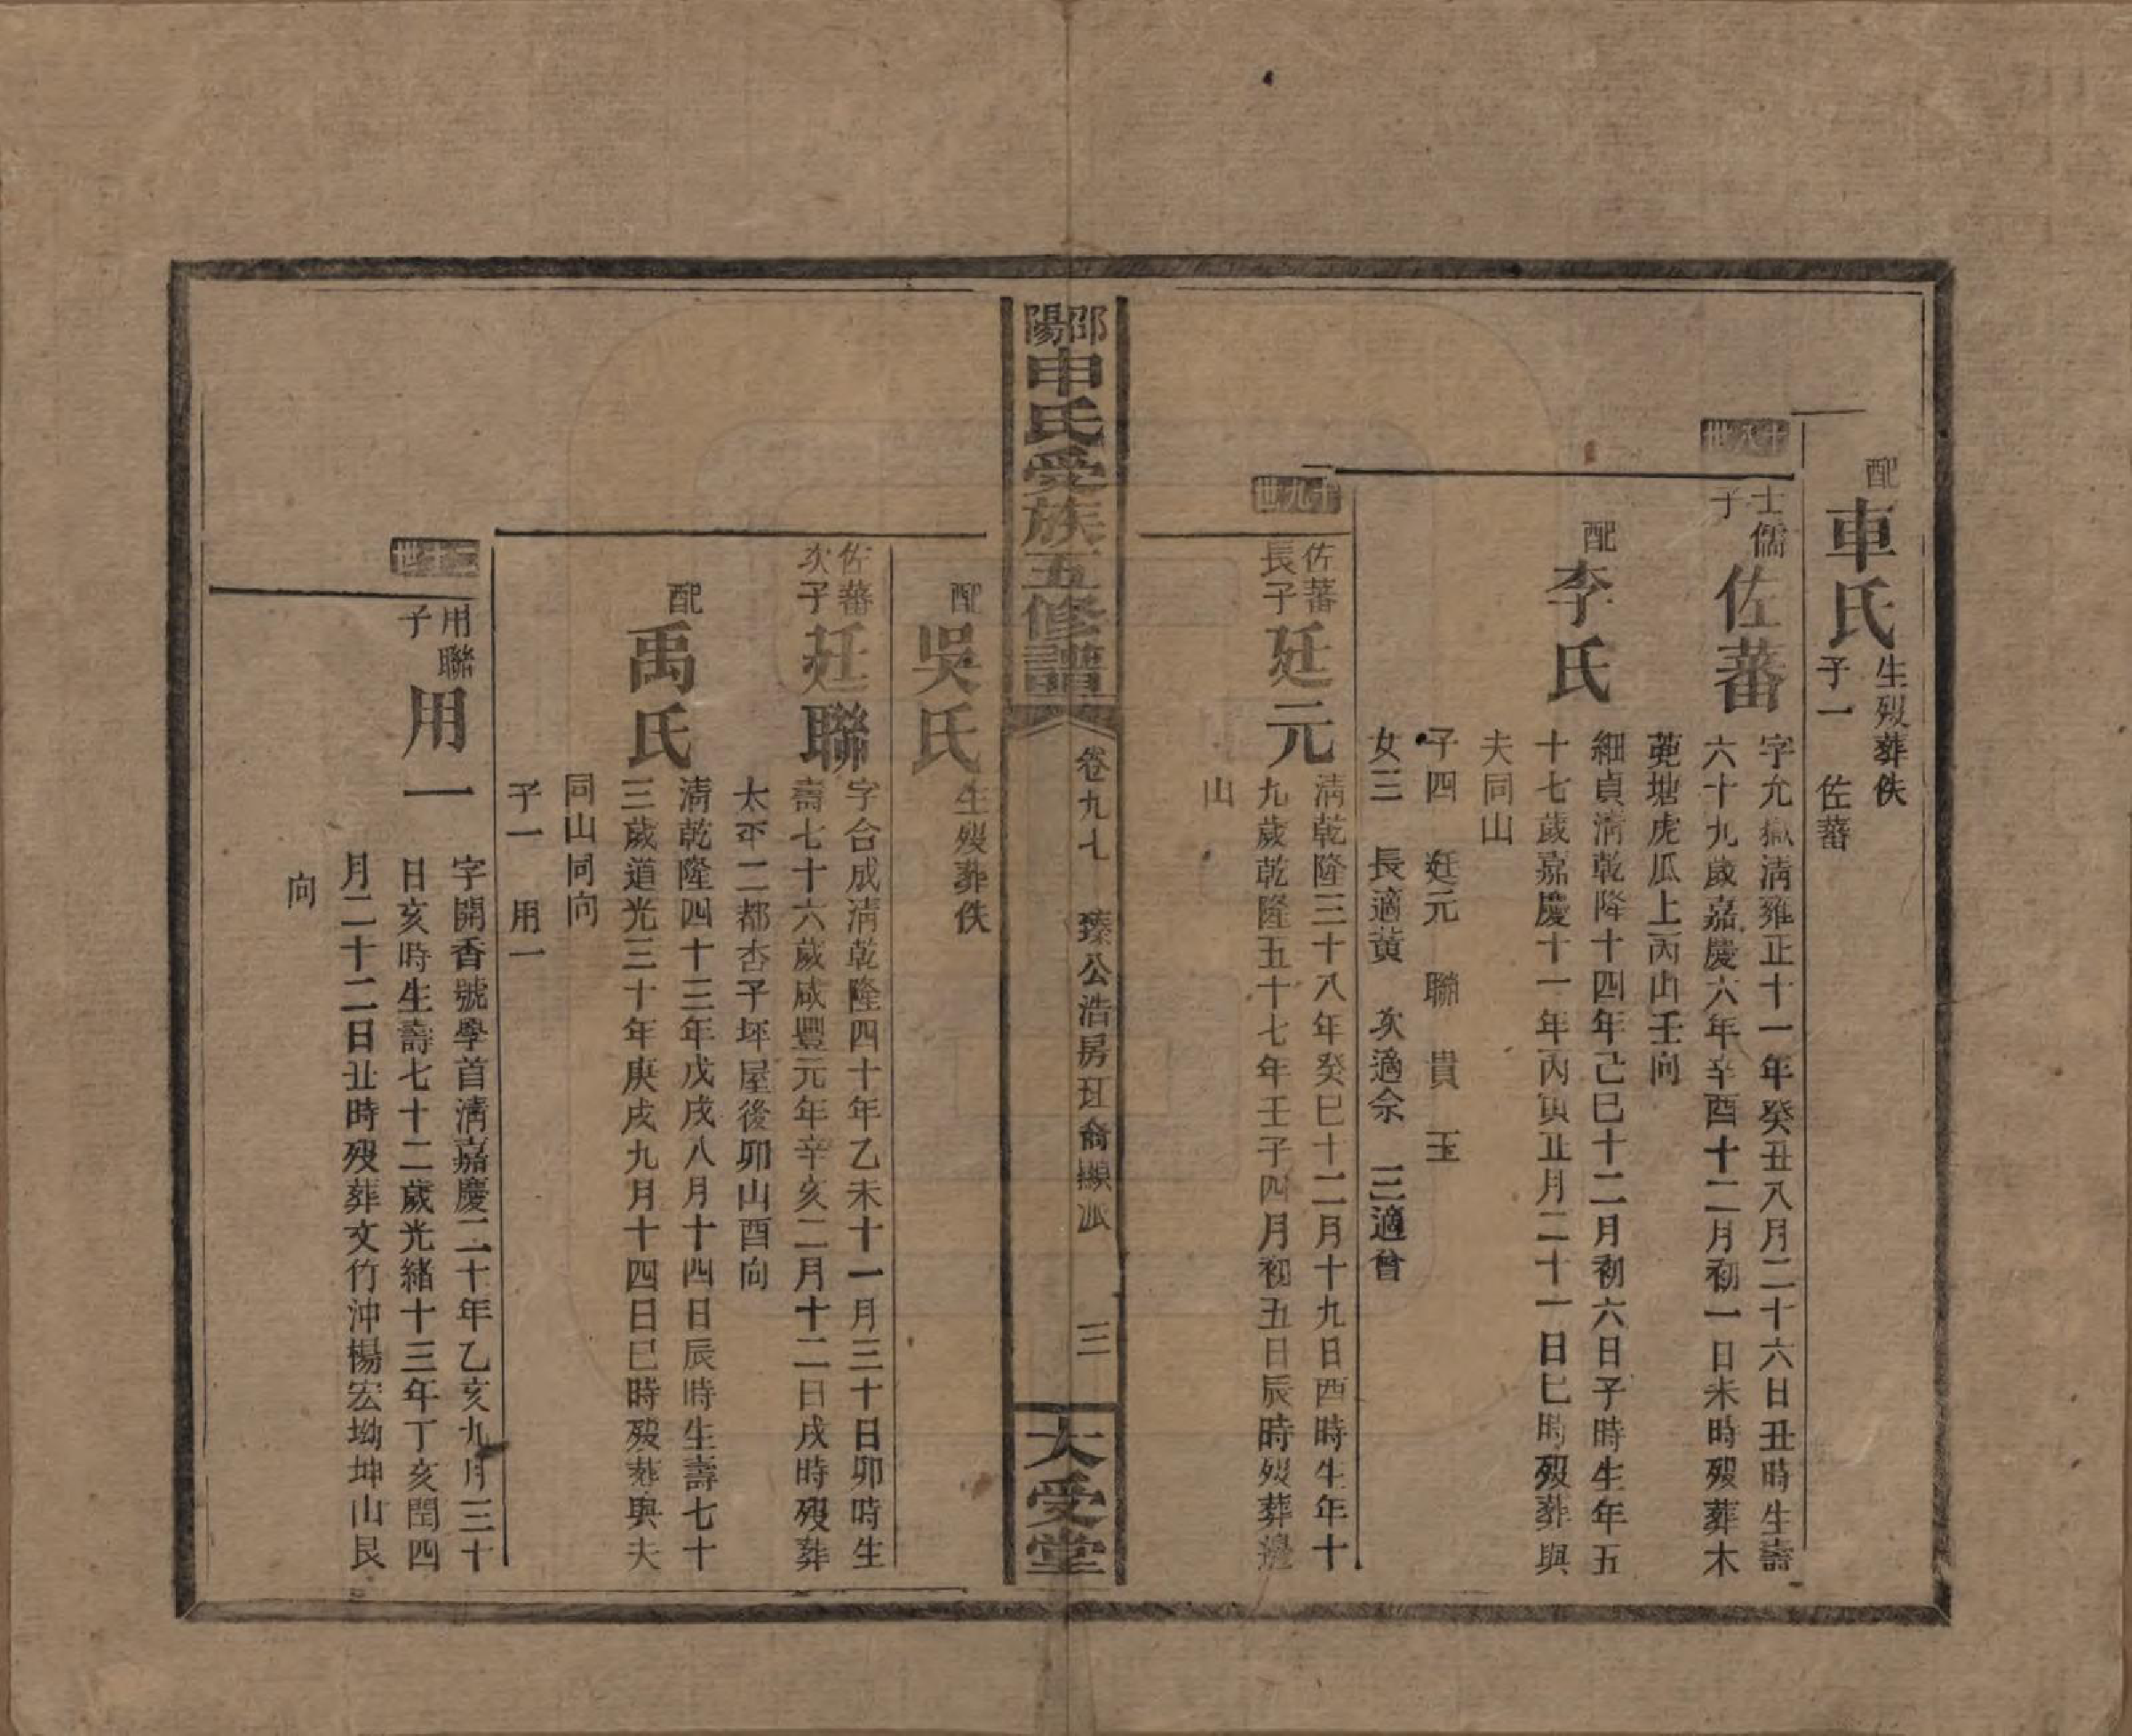 配
車氏
生歿葬佚
子一　佐蕃
十八世
士儒
子
佐蕃
字允嶽淸雍正十一年癸丑八月二十六日丑時生壽
六十九歲嘉慶六年辛酉十二月初一日未時歿葬木
蒬塘虎瓜上丙山壬向
配
李氏
細貞淸乾隆十四年己巳十二月初六日子時生年五
十七歲嘉慶十一年丙寅正月二十一日巳時歿葬與
夫同山
子四　廷元　聯　貴　玉
女三　長適黃　次適佘　三適曾
十九世
佐蕃
長子
廷元
淸乾隆三十八年癸巳十二月十九日酉時生年十
九歲乾隆五十七年壬子四月初五日辰時歿葬邊
山
邵陽申氏受族五修譜
卷九七　臻公浩房玨裔顯派　三
大受堂
配
吳氏
生歿葬佚
佐蕃
次子
廷聯
字合成淸乾隆四十年乙未十一月三十日卯時生
壽七十六歲咸豐元年辛亥二月十二日戌時歿葬
太平二都杏子坪屋後卯山酉向
配
禹氏
淸乾隆四十三年戊戌八月十四日辰時生壽七十
三歲道光三十年庚戌九月十四日巳時歿葬與夫
同山同向
子一　用一
二十世
用聯
子
用一
字開香號學首淸嘉慶二十年乙亥九月三十
日亥時生壽七十二歲光緒十三年丁亥閏四
月二十二日丑時歿葬文竹沖楊宏坳坤山艮
向